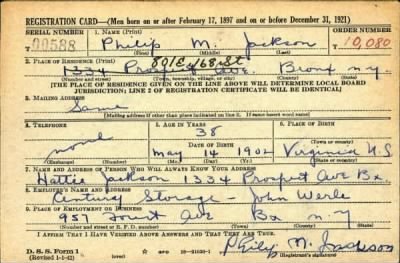 REGISTRATION CARD—(Men born on or after February 17, 1897 and on or before December 31, 1921)
SERIAL NUMBER 1. NAME (Print) ORDER NUMBER
00588 Philip M. Jackson 10,080
(First) (Middle) (Last)
801 E 168 St
2. PLACE OF RESIDENCE (Print)
1334 Ave. Bronx N.Y.
(Number and street) (Town, township, village, or city) (County) (State)
[THE PLACE OF RESIDENCE GIVEN ON THE LINE ABOVE WILL DETERMINE LOCAL BOARD
JURISDICTION; LINE 2 OF REGISTRATION CERTIFICATE WILL BE IDENTICAL]
3. MAILING ADDRESS
Same
[Mailing address if other than place indicated on line 2. If same insert word same]
4. TELEPHONE 5. AGE IN YEARS 6. PLACE OF BIRTH
38
DATE OF BIRTH
none May 14 1902 Virginia U.S
(Exchange) (Number) (Mo.) (Day) (Yr.)
7. NAME AND ADDRESS OF PERSON WHO WILL ALWAYS KNOW YOUR ADDRESS
Hattie Jackson 1334 Prospect Ave Bx.
8. EMPLOYER'S NAME AND ADDRESS
Century Storage - John Werle
9. PLACE OF EMPLOYMENT OR BUSINESS
957 Forest Ave Bx N-Y
(Number and street or R. F. D. number) (Town) (County) (State)
I AFFIRM THAT I HAVE VERIFIED ABOVE ANSWERS AND THAT THEY ARE TRUE.
D. S. S. Form 1
(Revised 1-1-42) Philip M. Jackson
(Registrant's signature)